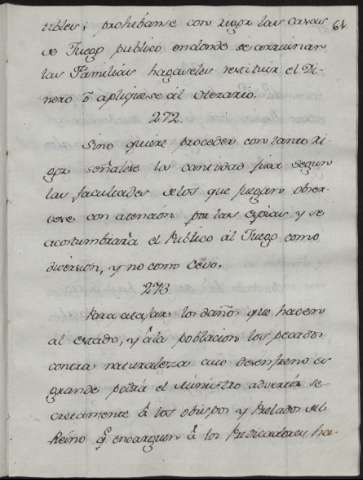 tibles; prohibanse con rigor las casas
64
de Juego publico endonde se arruinan
las Familias hagaseles restituir el Di-
nero ó apliquese al otorario.
272.
Sino quiere proceder con tanto ri
gor señalese la cantidad fixa segun
las facultades delos que juegan obser
vese con atencion por las espias y se
acostumbrara el Publico al Juego como
diversion, y no como Cevo.
273.
Para atajar los daños que hacen
al estado, y á la poblacion los pecados
contra naturaleza cuio desenfreno es
grande podrá el Ministro advertir se-
cretamente á los obispos y Prelados del
Reino q.e encarguen á los Predicadores, ha-